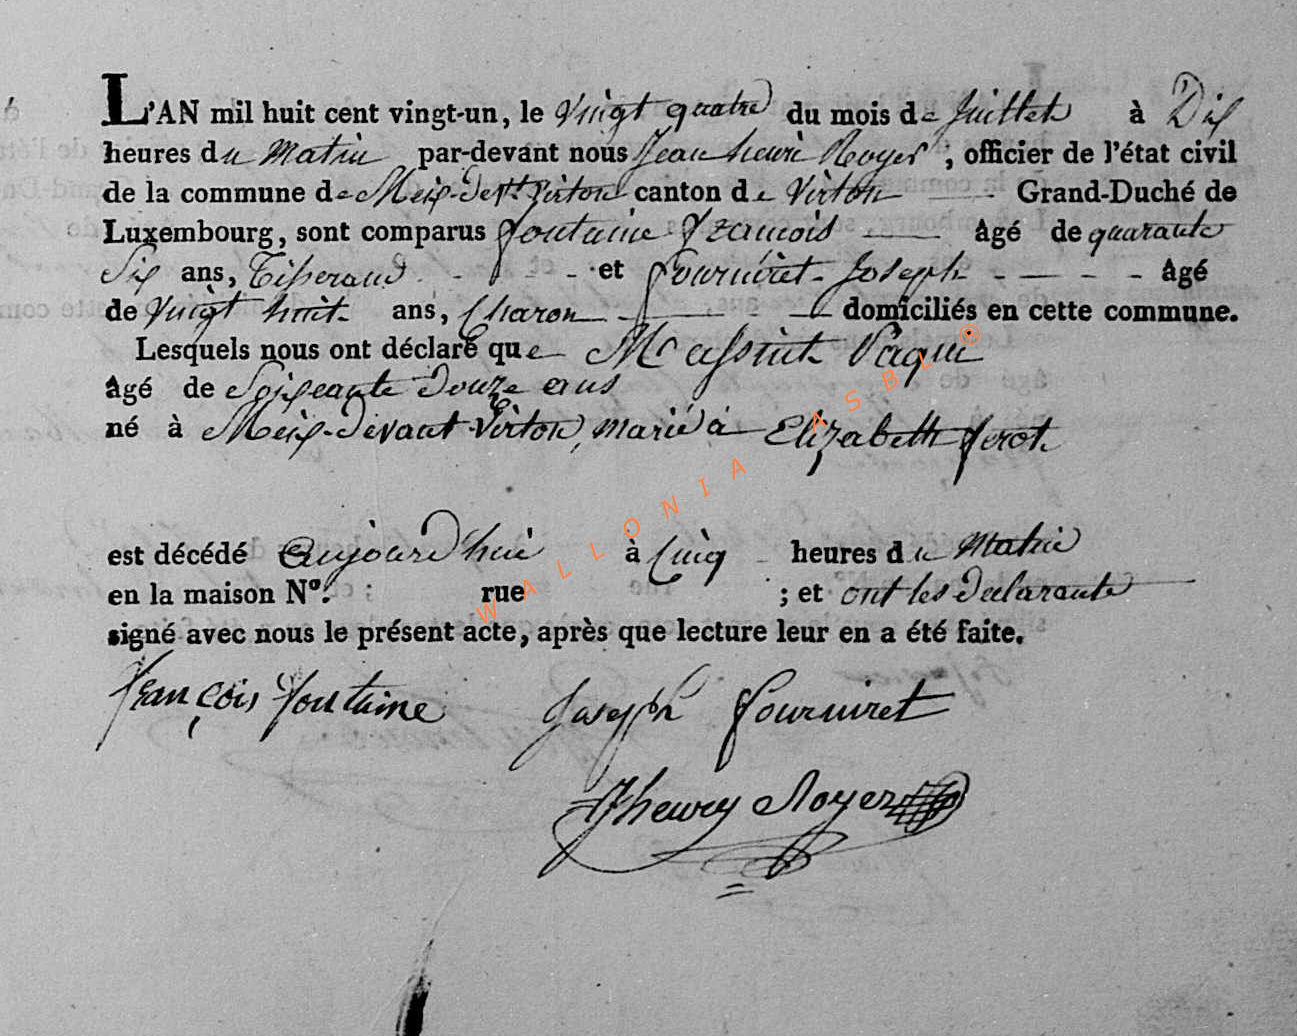 L'AN mil huit cent vingt-un, le vingt quatre du mois de Juillet à Dix
heures du Matin par-devant nous Jean henri Royer, officier de l'état civil
de la commune de Meix-devt virton canton de Virton Grand-Duché de
Luxembourg, sont comparus fontaine francois âgé de quarante
Six ans, Tisserand et fourniret Joseph âgé
de vingt huit ans, Charon domiciliés en cette commune.
Lesquels nous ont déclaré que Paquit
âgé de Soixeante Douze ans
né à Meix-Devant-Virton, marié à Elizabeth ferot
est décédé aujourd'hui à Cinq heures du Matin
en la maison N°. ; rue ; et ont les Declarants
signé avec nous le présent acte, après que lecture leur en a été faite.
françois fontaine Joseph fourniret
Jhenry Royer
WALLONIA ASBL ®